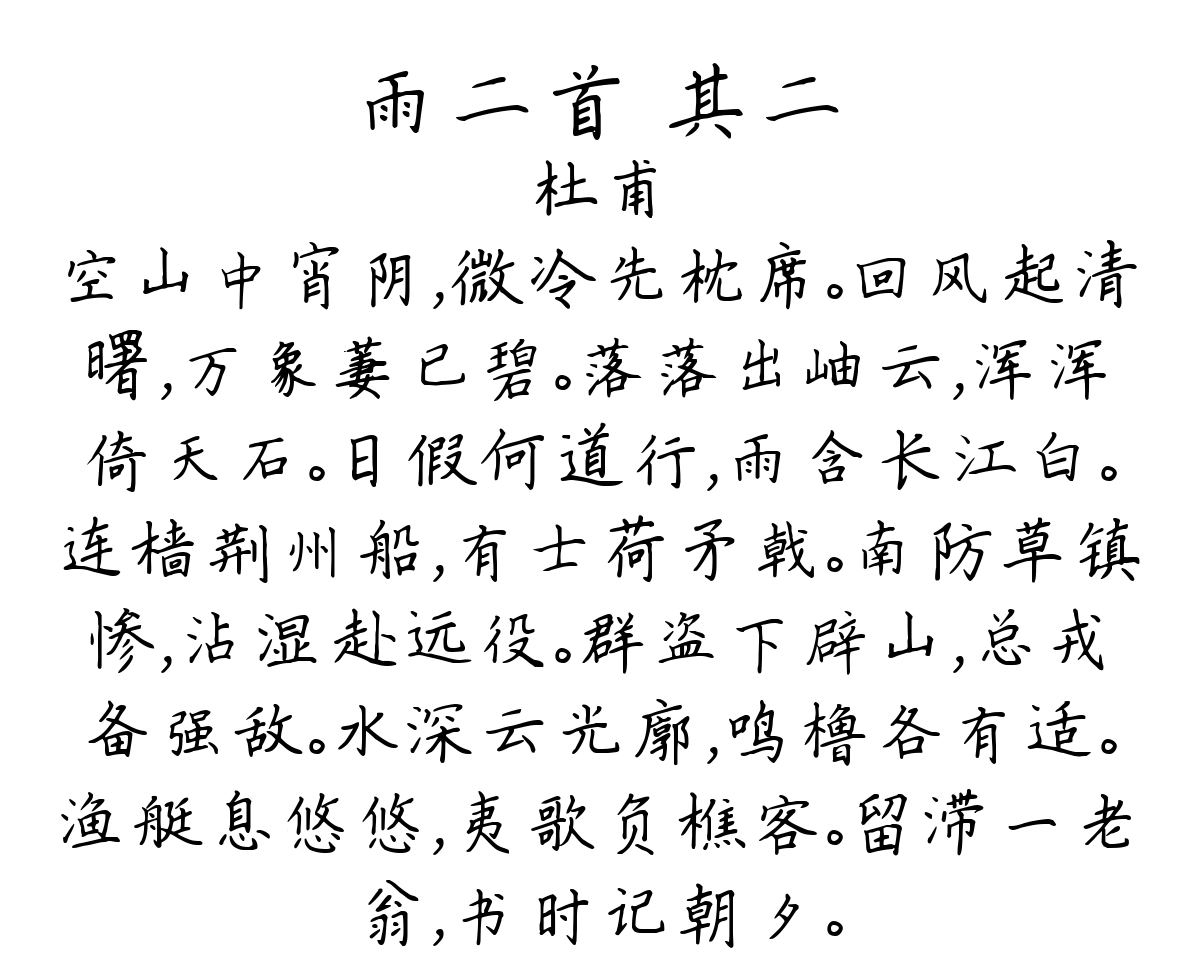 雨二首 其二
杜甫
空山中宵阴,微冷先枕席。回风起清
曙,万象萋已碧。落落出岫云,浑浑
倚天石。日假何道行,雨含长江白。
连樯荆州船,有士荷矛戟。南防草镇
惨,沾湿赴远役。群盗下辟山,总戎
备强敌。水深云光廓,鸣橹各有适。
渔艇息悠悠,夷歌负樵客。留滞一老
翁,书时记朝夕。